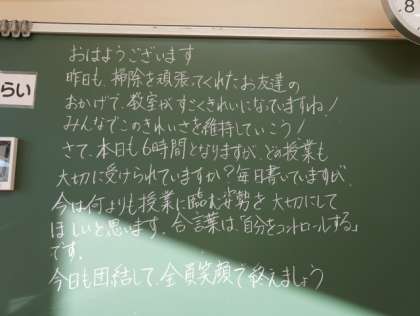 おはようございます
昨日も、掃除を頑張ってくれたお友達の
おかげで、教室がすごくきれいになっていますね!
みんなでこのきれいさを維持していこう!
らい
さて、本日も6時間となりますが、どの授業も
大切に受けられていますか?毎日書いていますが、
今は何よりも授業に臨む姿勢を大切にして
ほしいと思います。合言葉は「自分をコントロールする」
です。
今日も団結して、全員笑顔で終えましょう